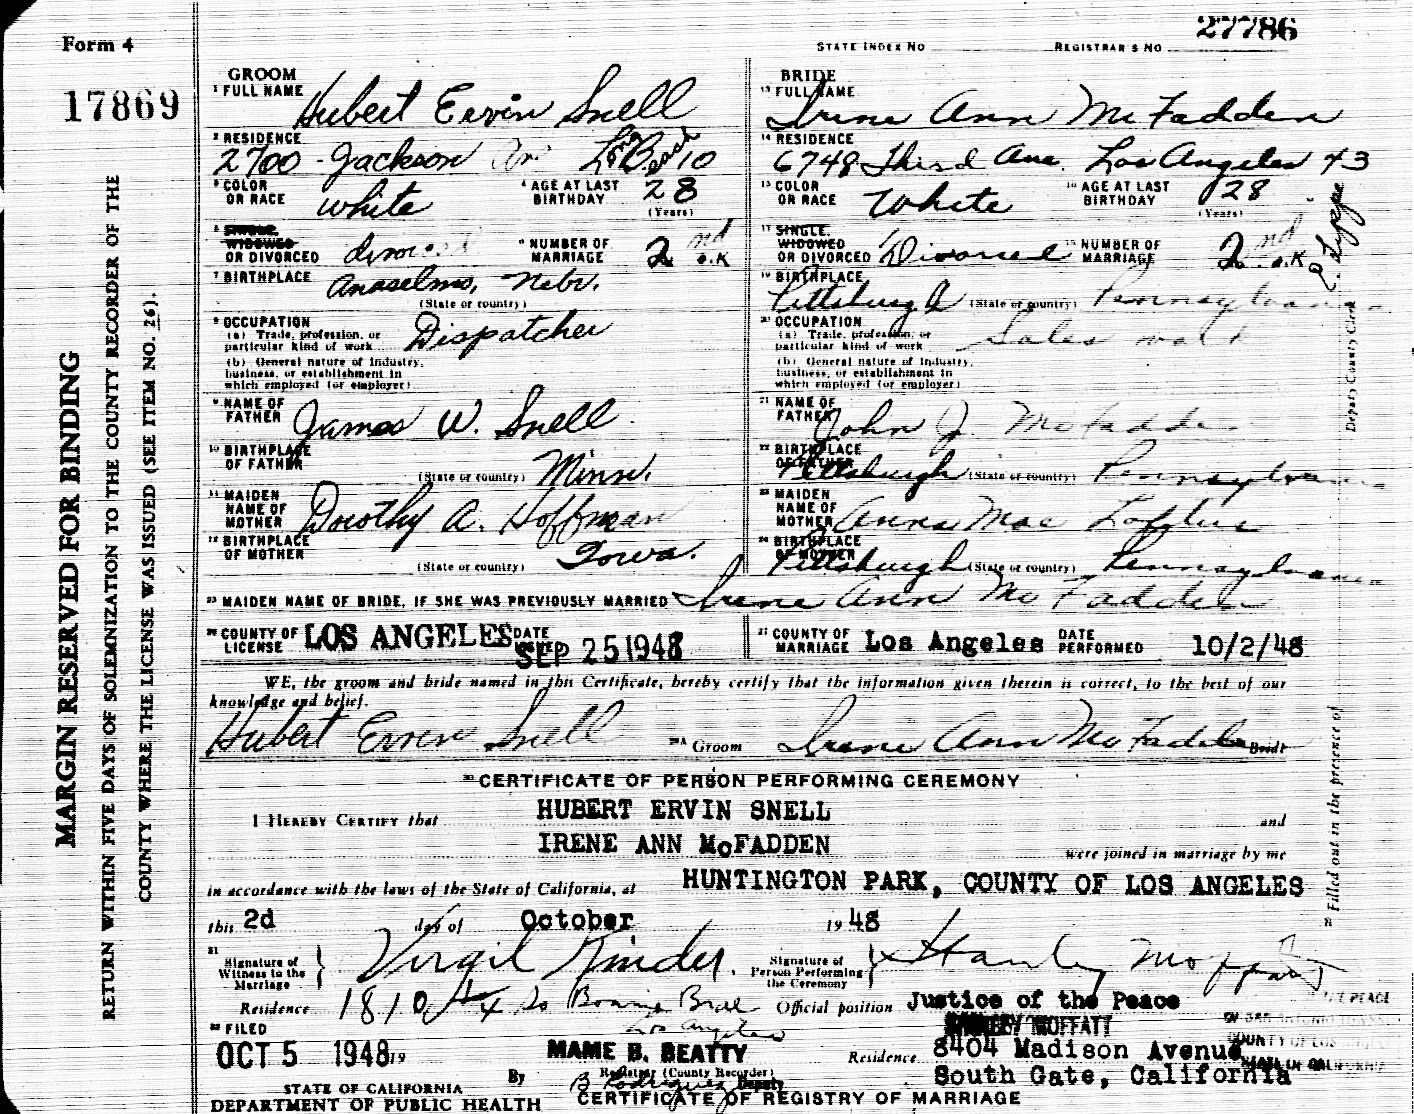 27786
Form 4
STATE INDEX NO
REGISTRAR'S NO.
17869
GROOM
1 FULL NAME Hubert Ervin Snell
2 RESIDENCE
2700 - Jackson Long Beach 10
3 COLOR OR RACE white
4 AGE AT LAST BIRTHDAY 28 (Years)
5 SINGLE, WIDOWED OR DIVORCED
6 NUMBER OF MARRIAGE 2nd O.K
7 BIRTHPLACE Anaselmo, Nebr.
(State or country)
8 OCCUPATION
(a) Trade, profession, or particular kind of work Dispatcher
(b) General nature of industry, business, or establishment in which employed (or employer)
9 NAME OF FATHER James W. Snell
10 BIRTHPLACE OF FATHER (State or country) Minn.
11 MAIDEN NAME OF MOTHER Dorothy A. Hoffman
12 BIRTHPLACE OF MOTHER (State or country) Iowa.
BRIDE
13 FULL NAME
Irene Ann McFadden
14 RESIDENCE
6748 Third Ave. Los Angeles 43
15 COLOR OR RACE White
16 AGE AT LAST BIRTHDAY 28 (Years)
17 SINGLE, WIDOWED OR DIVORCED Divorced
18 NUMBER OF MARRIAGE 2nd O.K
19 BIRTHPLACE
Pittsburgh (State or country) Pennsylvania
20 OCCUPATION
(a) Trade, profession, or particular kind of work Sales
(b) General nature of industry, business, or establishment in which employed (or employer)
21 NAME OF FATHER
John J. McFadden
22 BIRTHPLACE OF FATHER
Pittsburgh (State or country) Pennsylvania
23 MAIDEN NAME OF MOTHER Anna Mae Loftus
24 BIRTHPLACE OF MOTHER
Pittsburgh (State or country) Pennsylvania
25 MAIDEN NAME OF BRIDE, IF SHE WAS PREVIOUSLY MARRIED Irene Ann McFadden
26 COUNTY OF LICENSE LOS ANGELES DATE SEP 25 1948
27 COUNTY OF MARRIAGE Los Angeles DATE PERFORMED 10/2/48
WE, the groom and bride named in this Certificate, hereby certify that the information given therein is correct, to the best of our
knowledge and belief.
Hubert Ervin Snell Groom Irene Ann McFadden Bride
CERTIFICATE OF PERSON PERFORMING CEREMONY
I HEREBY CERTIFY that HUBERT ERVIN SNELL and
IRENE ANN McFADDEN were joined in marriage by me
in accordance with the laws of the State of California, at HUNTINGTON PARK, COUNTY OF LOS ANGELES
this 2d day of October 1948
31 Signature of Witness to the Marriage } Virgil Kinder.
Signature of Person Performing the Ceremony } Stanley Moffatt
Residence 1810 So Bonnie Brae
Los Angeles
Official position Justice of the Peace
STANLEY MOFFATT
FILED
OCT 5 1948 19
MAME B. BEATTY
Registrar (County Recorder)
By B Rodriguez Deputy
Residence 8404 Madison Avenue
South Gate, California
STATE OF CALIFORNIA
DEPARTMENT OF PUBLIC HEALTH
CERTIFICATE OF REGISTRY OF MARRIAGE
MARGIN RESERVED FOR BINDING
RETURN WITHIN FIVE DAYS OF SOLEMNIZATION TO THE COUNTY RECORDER OF THE
COUNTY WHERE THE LICENSE WAS ISSUED (SEE ITEM NO. 26).
Filled out in the presence of
Deputy County Clerk